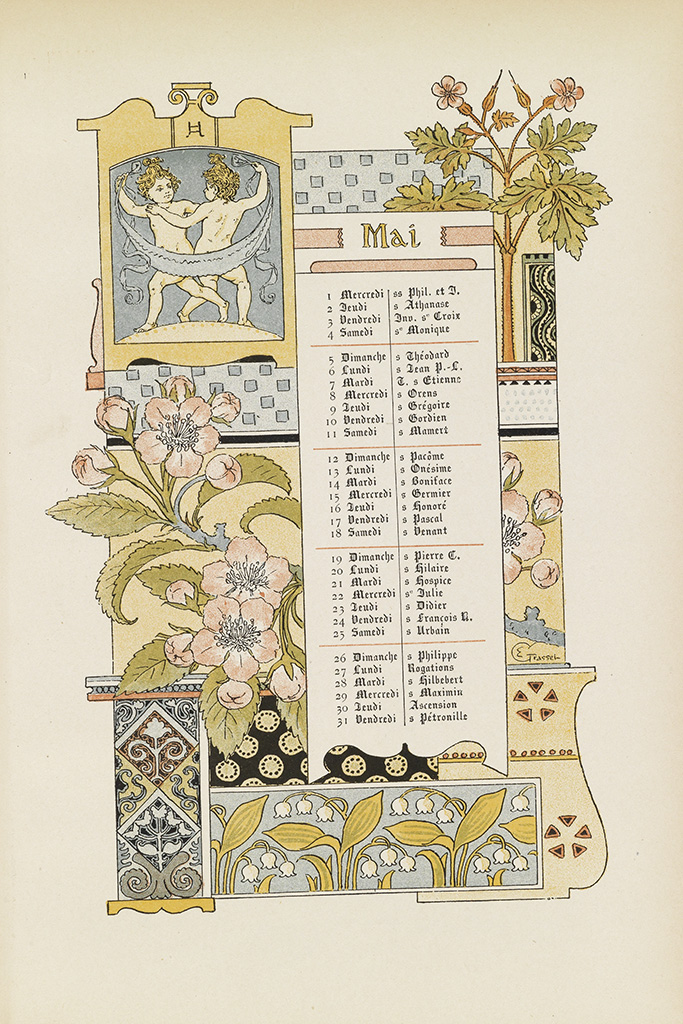 H
Mai
1 Mercredi ss Phil. et J.
2 Jeudi s Athanase
3 Vendredi Inv. se Croix
4 Samedi se Monique
5 Dimanche s Théodard
6 Lundi s Jean P.-L.
7 Mardi T. s Etienne
8 Mercredi s Orens
9 Jeudi s Grégoire
10 Vendredi s Gordien
11 Samedi s Mamert
12 Dimanche s Pacôme
13 Lundi s Onésime
14 Mardi s Boniface
15 Mercredi s Germier
16 Jeudi s Honoré
17 Vendredi s Pascal
18 Samedi s Venant
19 Dimanche s Pierre C.
20 Lundi s Hilaire
21 Mardi s Hospice
22 Mercredi se Julie
23 Jeudi s Didier
24 Vendredi s François R.
25 Samedi s Urbain
26 Dimanche s Philippe
27 Lundi Rogations
28 Mardi s Hilbebert
29 Mercredi s Maximin
30 Jeudi Ascension
31 Vendredi s Pétronille
E Grasset